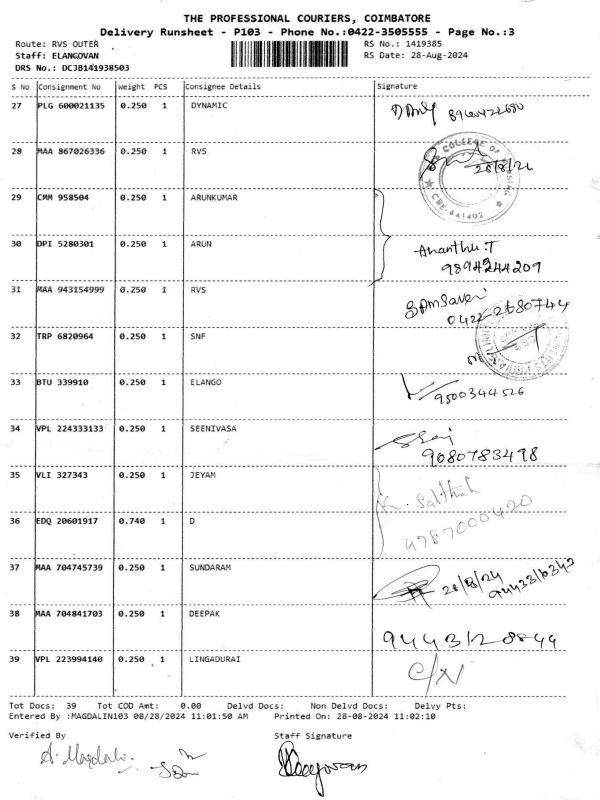 THE PROFESSIONAL COURIERS, COIMBATORE
Delivery Runsheet - P103 - Phone No.:0422-3505555 - Page No.:3
Route: RVS OUTER RS No.: 1419385
Staff: ELANGOVAN RS Date: 28-Aug-2024
DRS No.: DCJB141938503
S No Consignment No Weight PCS Consignee Details Signature
27 PLG 600021135 0.250 1 DYNAMIC
28 MAA 867026336 0.250 1 RVS
COLLEGE OF
CBE-641402
29 CMM 958504 0.250 1 ARUNKUMAR
30 DPI 5280301 0.250 1 ARUN
Ananthu.T
9894244209
31 MAA 943154999 0.250 1 RVS
0422-2680744
32 TRP 6820964 0.250 1 SNF
33 BTU 339910 0.250 1 ELANGO
9500344526
34 VPL 224333133 0.250 1 SEENIVASA
9080783498
35 VLI 327343 0.250 1 JEYAM
36 EDQ 20601917 0.740 1 D
4787000420
37 MAA 704745739 0.250 1 SUNDARAM
28/8/24
38 MAA 704841703 0.250 1 DEEPAK
39 VPL 223994140 0.250 1 LINGADURAI
Tot Docs: 39 Tot COD Amt: 0.00 Delvd Docs: Non Delvd Docs: Delvy Pts:
Entered By :MAGDALIN103 08/28/2024 11:01:50 AM Printed On: 28-08-2024 11:02:10
Verified By Staff Signature